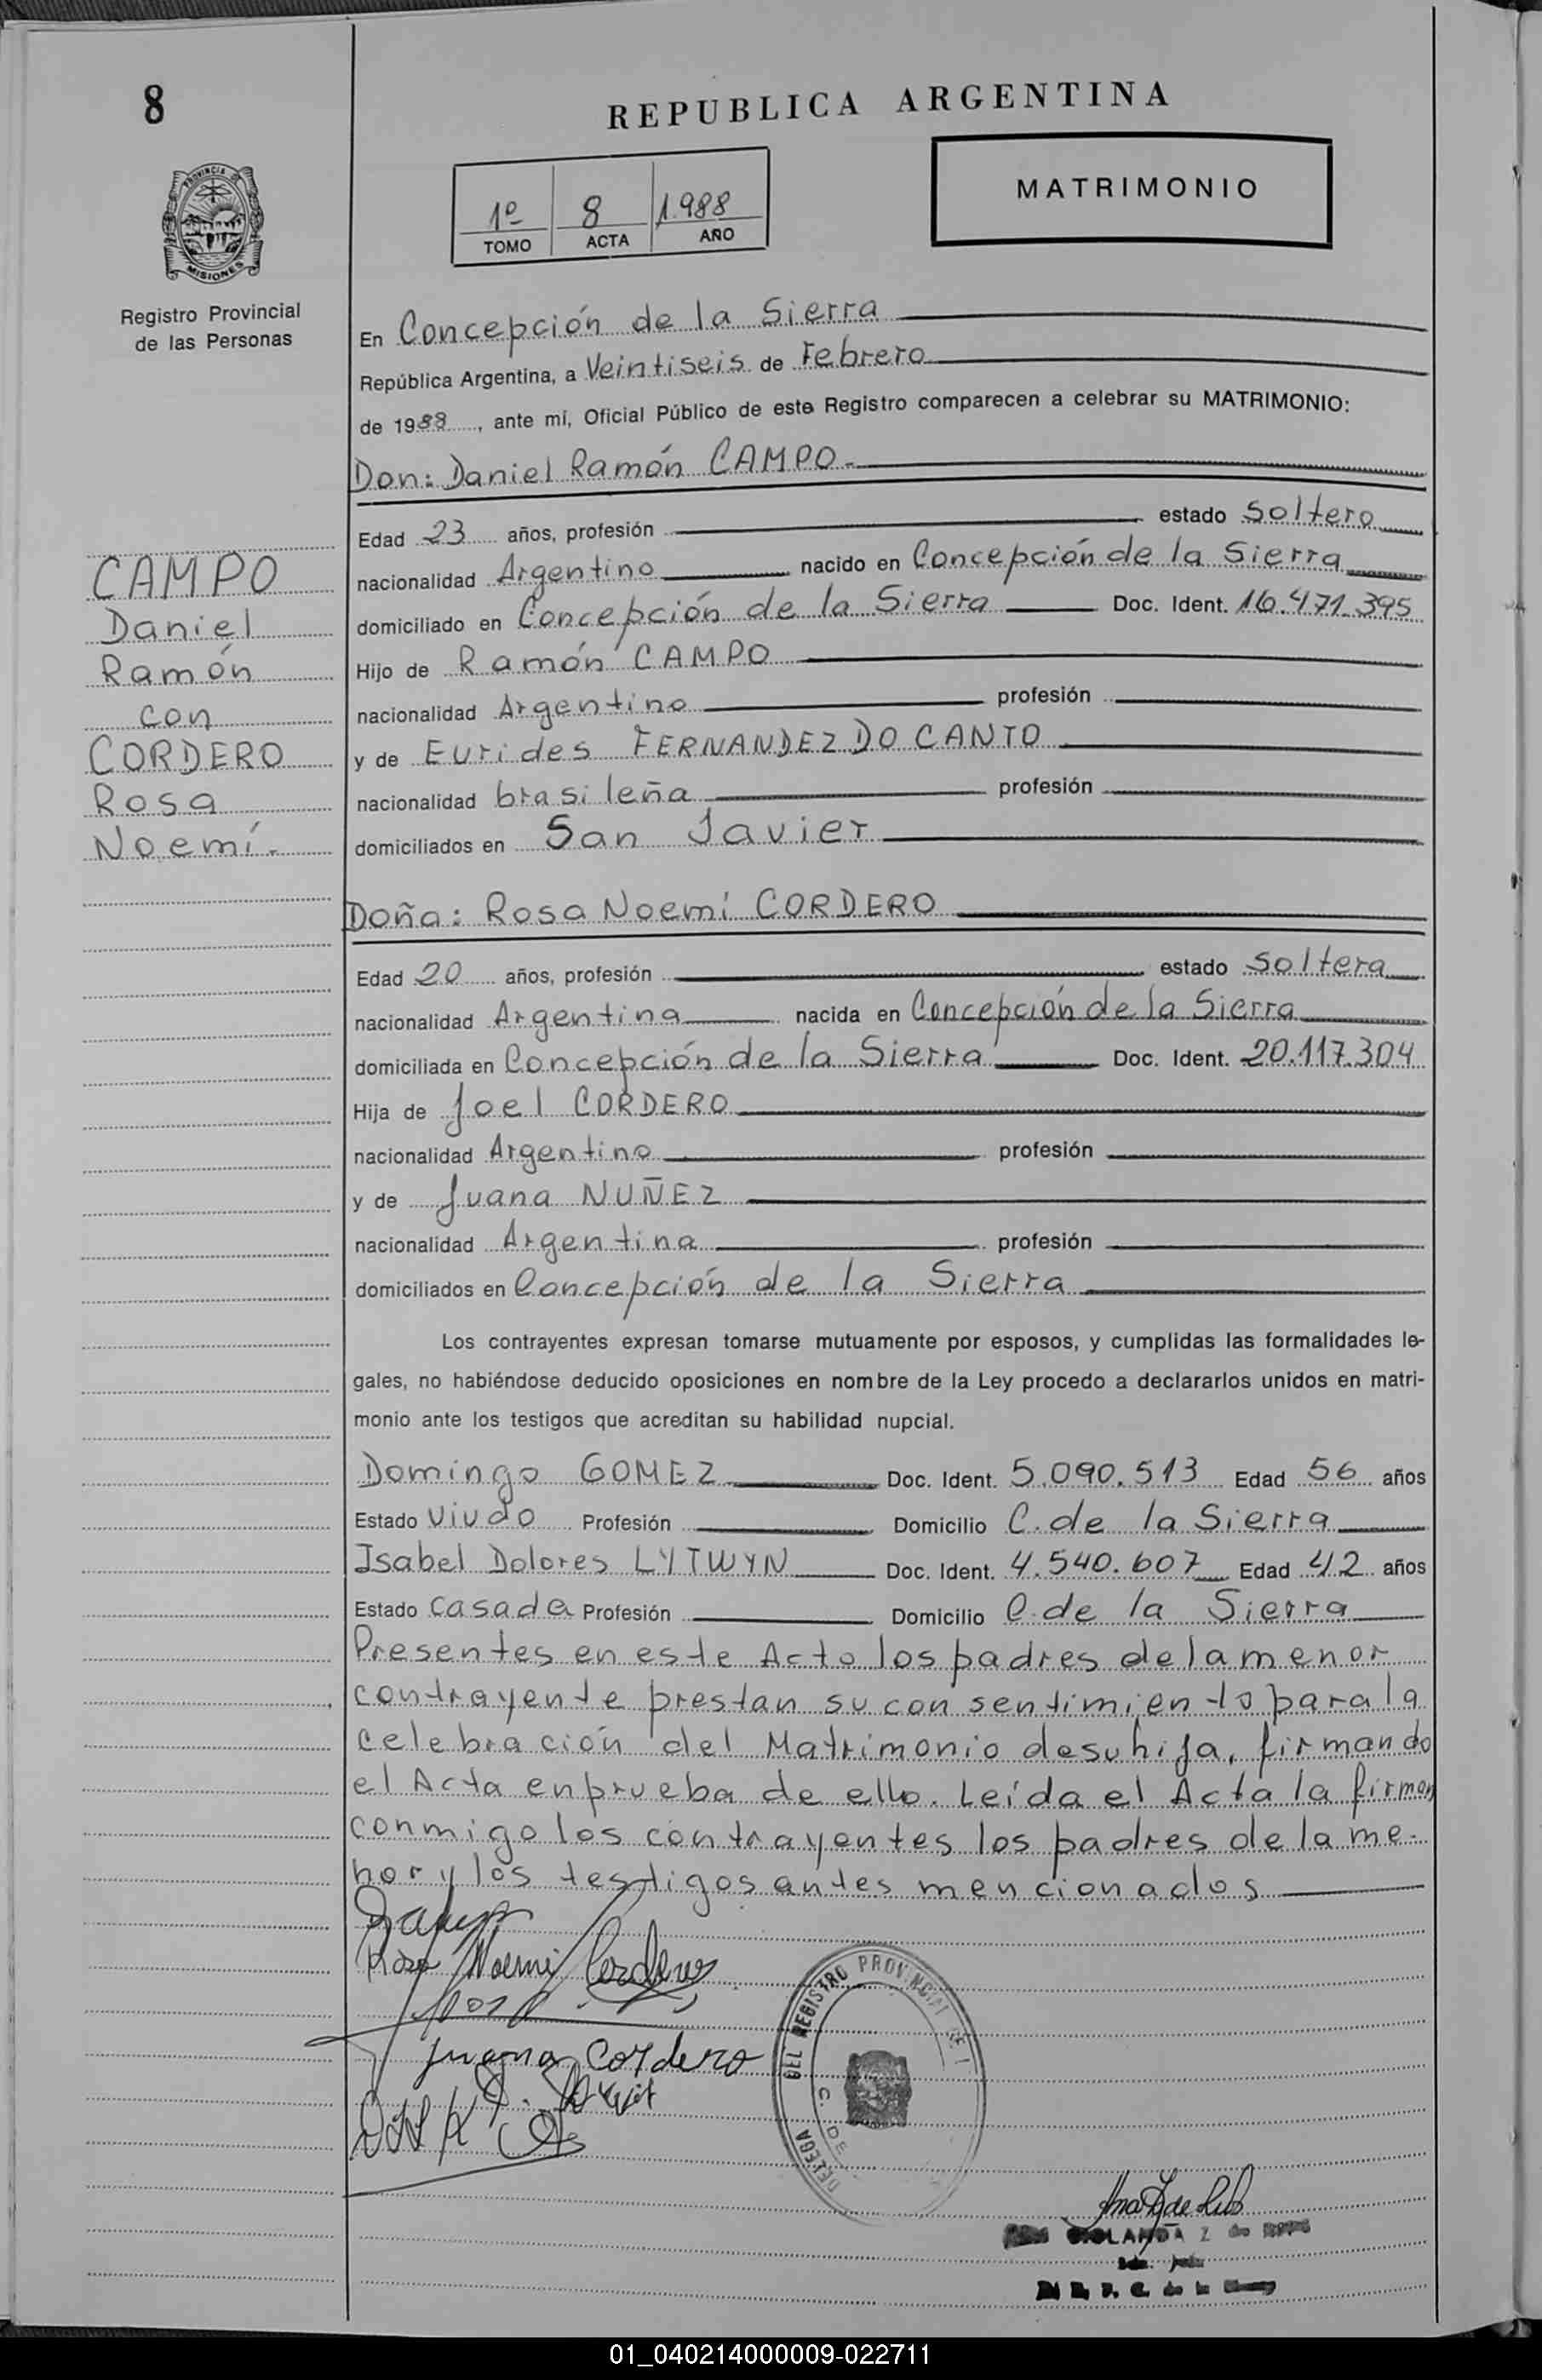 8
REPUBLICA ARGENTINA
PROVINCIA DE
MISIONES
Registro Provincial
de las Personas
1º 8 1.988
TOMO ACTA AÑO
MATRIMONIO
En Concepción de la Sierra
República Argentina, a Veintiseis de Febrero
de 1988, ante mí, Oficial Público de este Registro comparecen a celebrar su MATRIMONIO:
Don: Daniel Ramón CAMPO.-
Edad 23 años, profesión estado Soltero
nacionalidad Argentino nacido en Concepción de la Sierra
domiciliado en Concepción de la Sierra Doc. Ident. 16.471.395
Hijo de Ramón CAMPO
nacionalidad Argentino profesión
y de Eurides FERNANDEZ DO CANTO
nacionalidad brasileña profesión
domiciliados en San Javier
CAMPO
Daniel
Ramón
con
CORDERO
Rosa
Noemí.-
Doña: Rosa Noemí CORDERO
Edad 20 años, profesión estado Soltera
nacionalidad Argentina nacida en Concepción de la Sierra
domiciliada en Concepción de la Sierra Doc. Ident. 20.117.304
Hija de Joel CORDERO
nacionalidad Argentino profesión
y de Juana NUÑEZ
nacionalidad Argentina profesión
domiciliados en Concepción de la Sierra
Los contrayentes expresan tomarse mutuamente por esposos, y cumplidas las formalidades le-
gales, no habiéndose deducido oposiciones en nombre de la Ley procedo a declararlos unidos en matri-
monio ante los testigos que acreditan su habilidad nupcial.
Domingo GOMEZ Doc. Ident. 5.090.513 Edad 56 años
Estado Viudo Profesión Domicilio C. de la Sierra
Isabel Dolores LYTWYN Doc. Ident. 4.540.607 Edad 42 años
Estado Casada Profesión Domicilio C. de la Sierra
Presentes en este Acto los padres de la menor
contrayente prestan su consentimiento para la
celebración del Matrimonio de su hija, firmando
el Acta en prueba de ello. Leída el Acta la firman
conmigo los contrayentes los padres de la me-
nor y los testigos antes mencionados
Rosa Noemi Cordero
Juana Cordero
DEL REGISTRO PROVINCIAL DE
C. DE
DELEGA
01_040214000009-022711